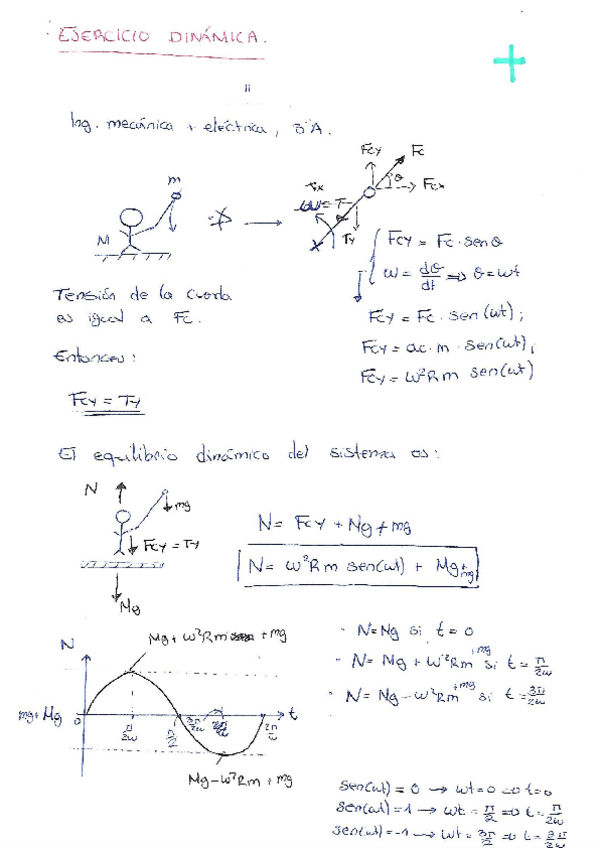 EJERCICIO DINÁMICA.
Ing. mecánica + eléctrica, 3ºA.
m
M
Fcy
Fc
θ
Fcx
Tx
Ty
Fcy = Fc · senθ
ω = dθ/dt ⇒ θ = ωt
Tensión de la cuerda
es igual a Fc.
Fcy = Fc · sen(ωt);
Fcy = ac · m · sen(ωt);
Fcy = ω²Rm sen(ωt)
Entonces:
Fcy = Ty
El equilibrio dinámico del sistema es:
N
mg
Fcy = Ty
Mg
N = Fcy + Mg + mg
N = ω²Rm sen(ωt) + Mg + mg
N
Mg + ω²Rm + mg
mg + Mg
0
π/2ω
3π/2ω
2π/ω
t
Mg - ω²Rm + mg
· N = Mg si t = 0
· N = Mg + ω²Rm + mg si t = π/2ω
· N = Mg - ω²Rm + mg si t = 3π/2ω
sen(ωt) = 0 → ωt = 0 ⇒ t = 0
sen(ωt) = 1 → ωt = π/2 ⇒ t = π/2ω
sen(ωt) = -1 → ωt = 3π/2 ⇒ t = 3π/2ω